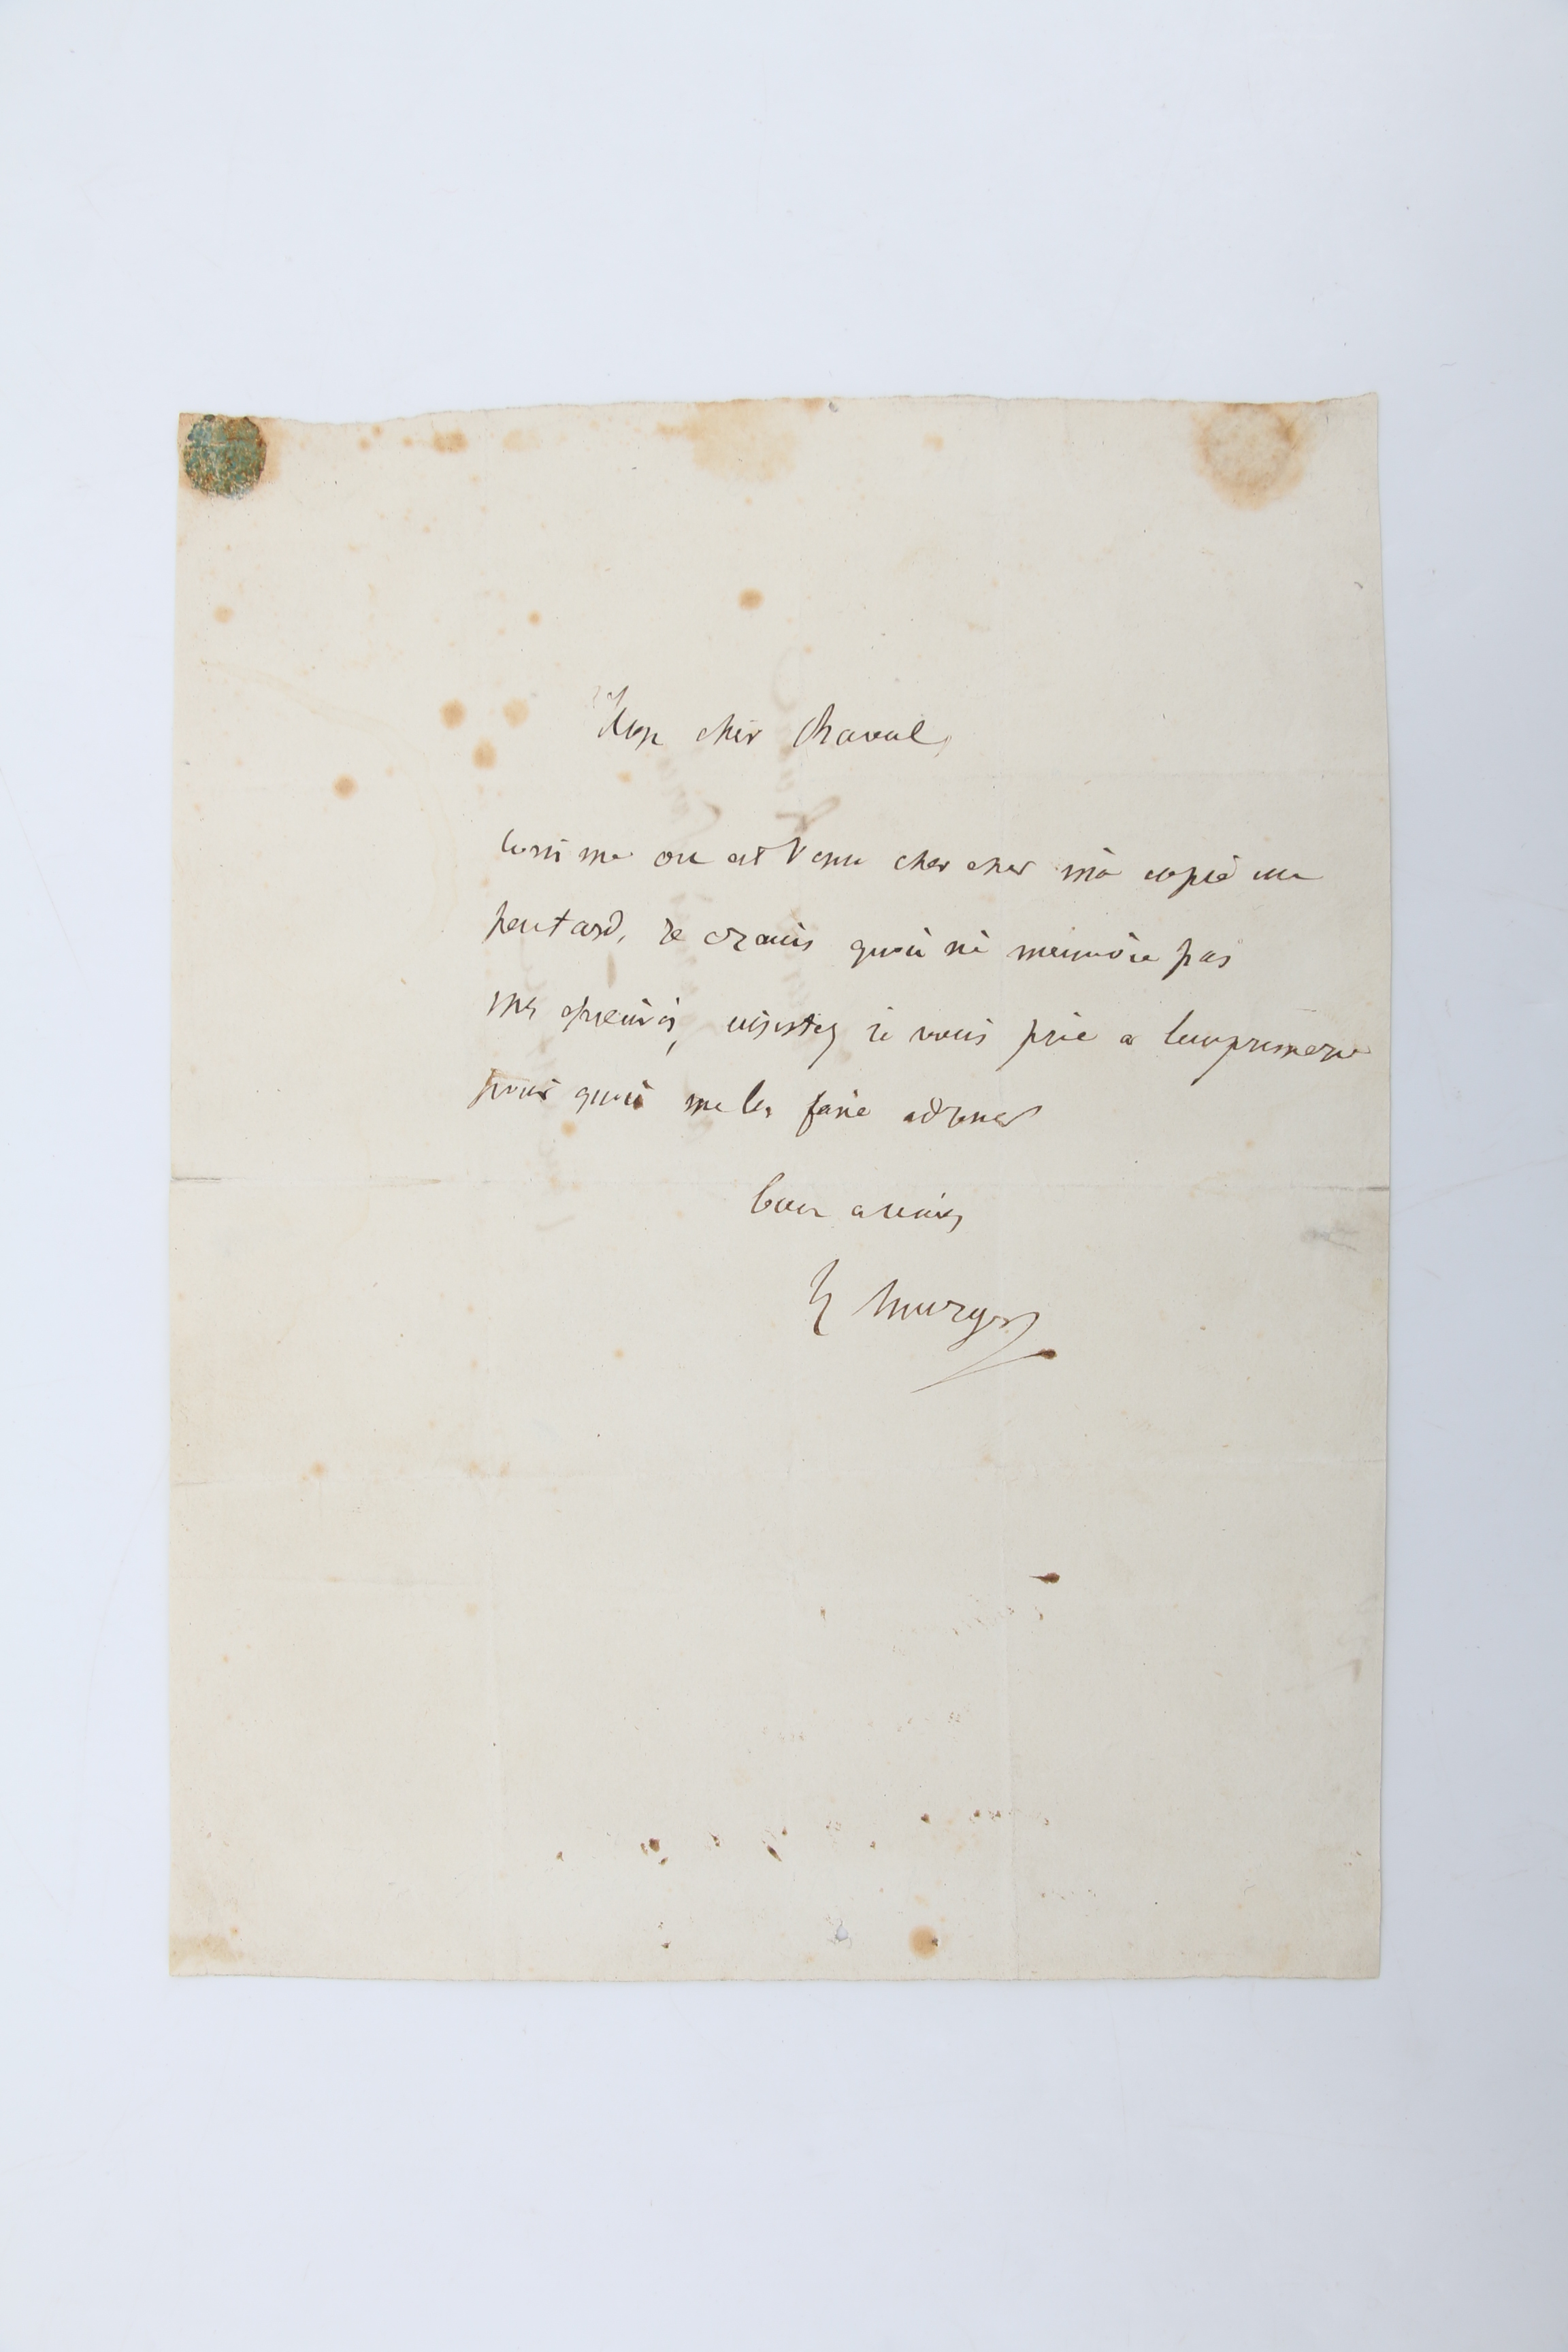 Mon cher Chavul,
Comme on est venu chercher ma copie un
peu tard, je crains qu'on ne m'envoie pas
mes epreuves, insistez je vous prie a l'imprimerie
pour qu'on me les fasse adresser
bien a vous
h Murger